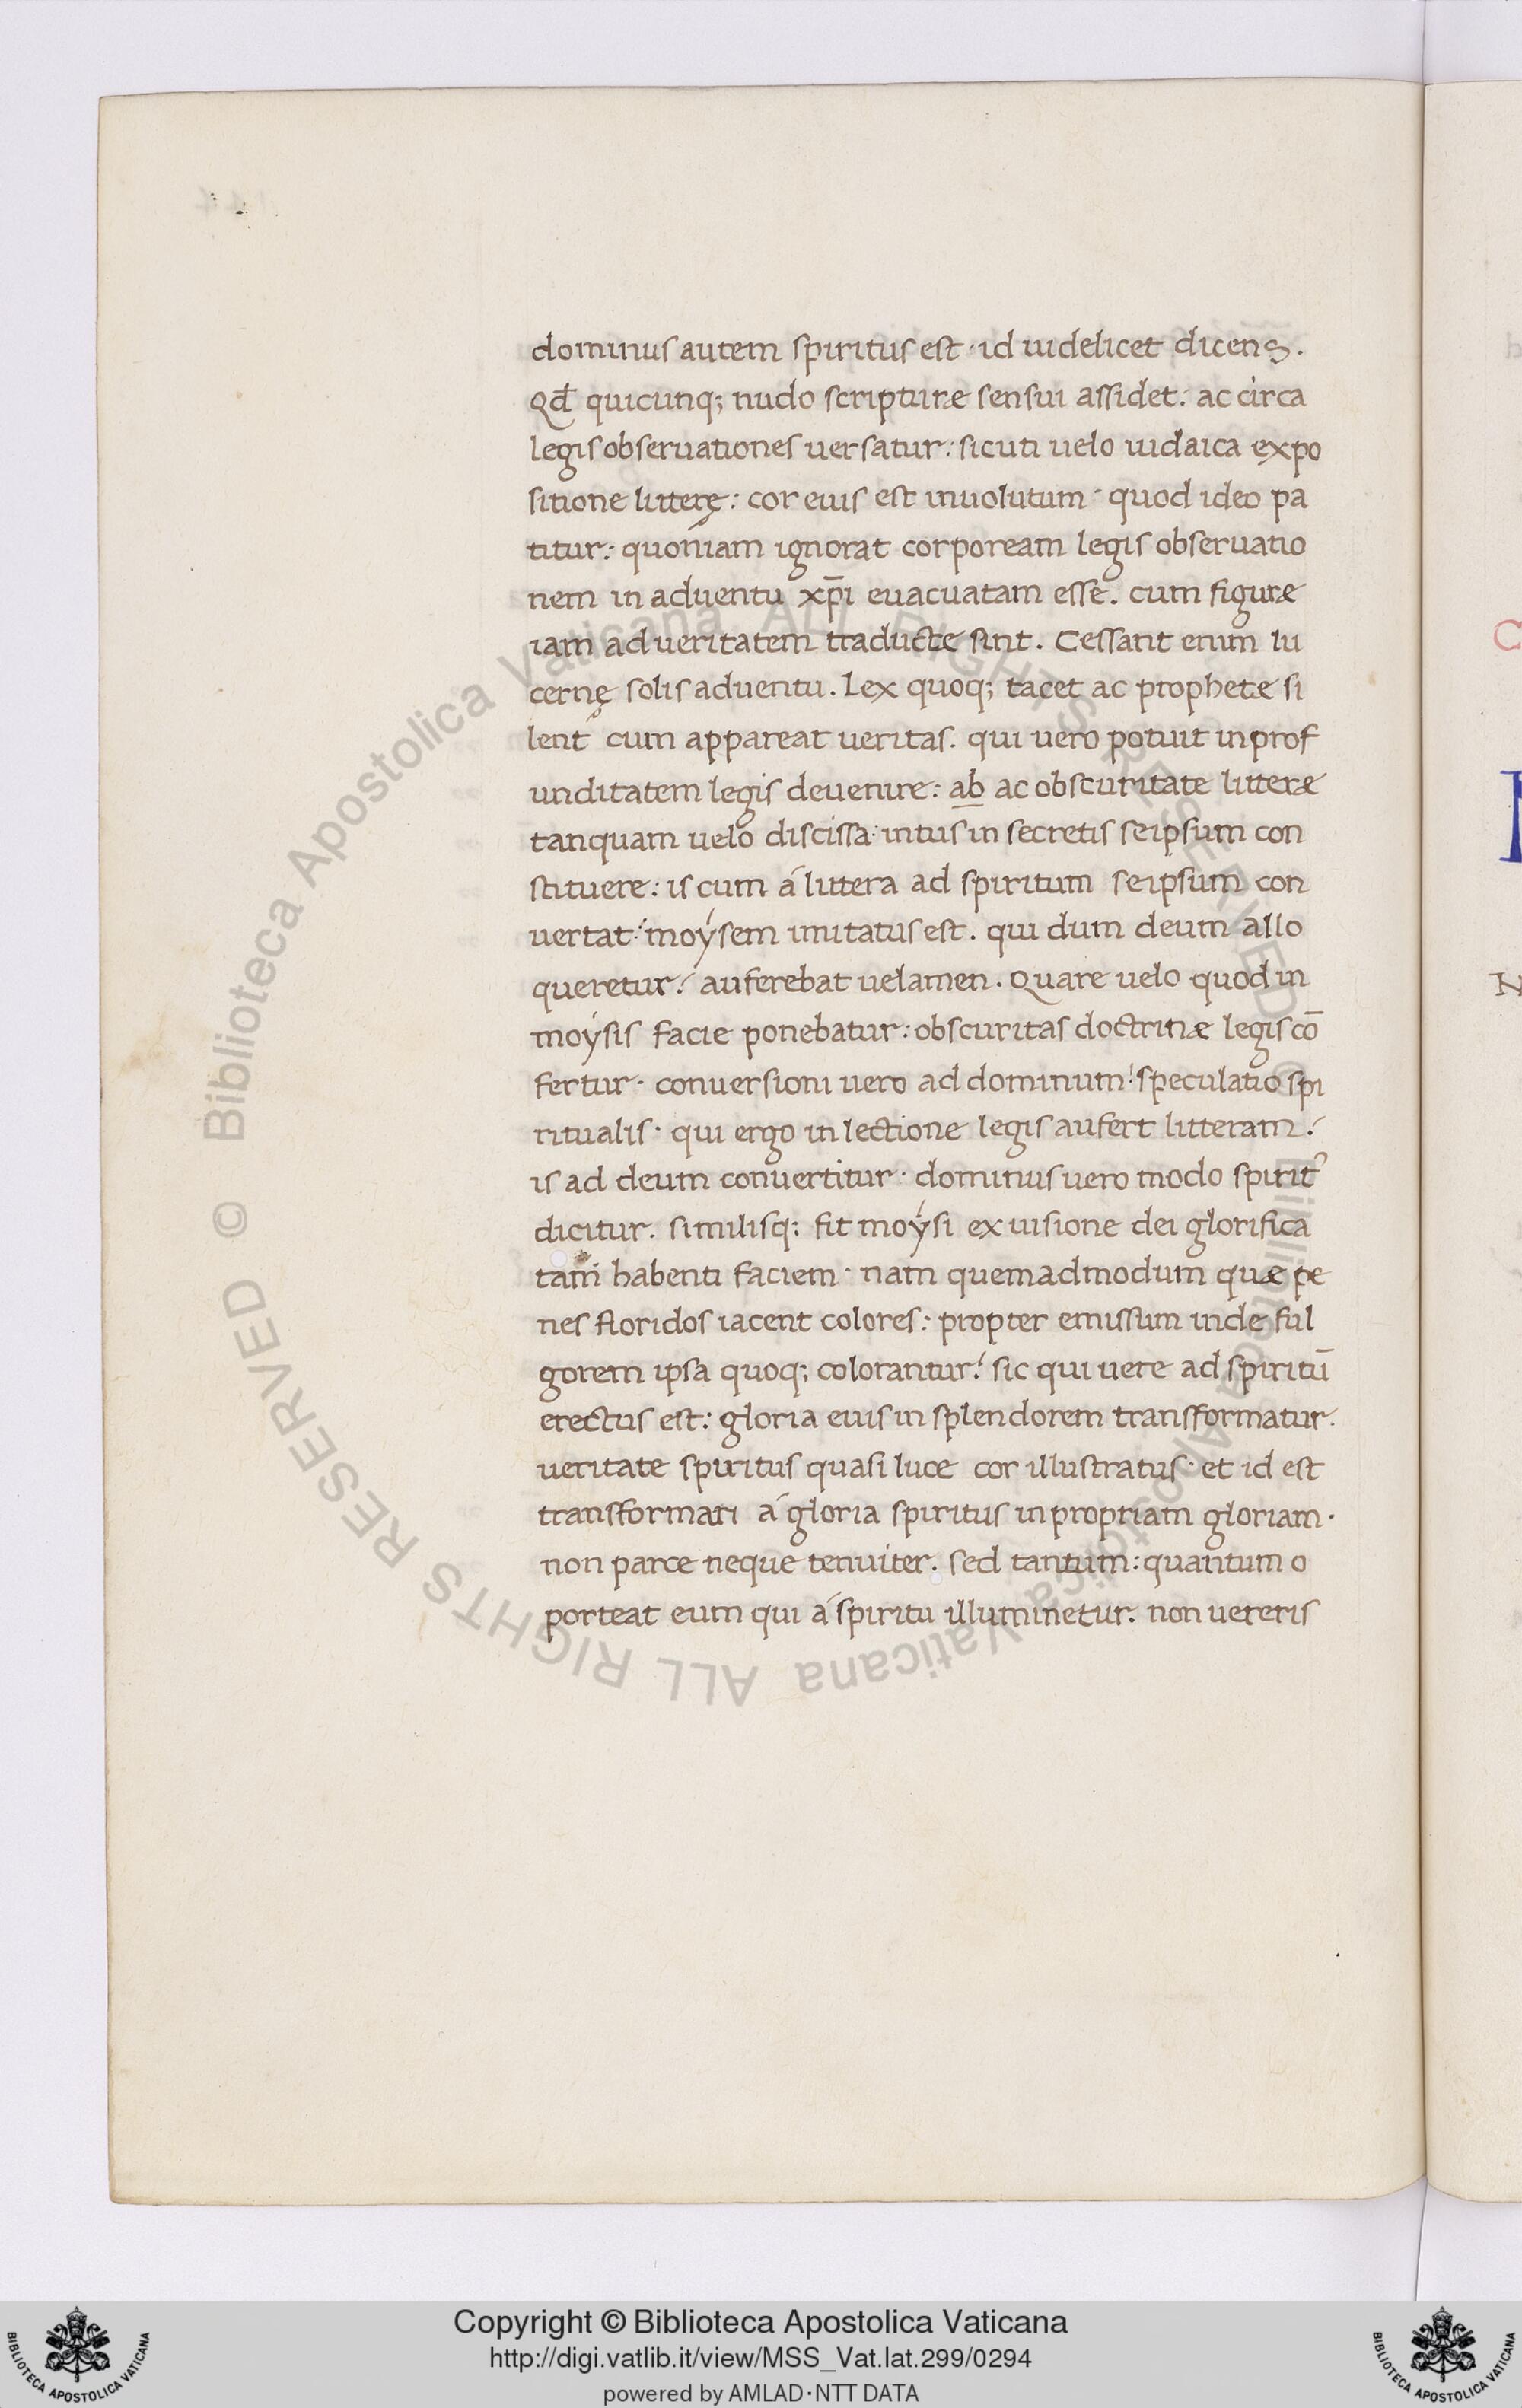 dominus autem spiritus est · id uidelicet dicens.
Qđ quicunq; nudo scripturæ sensui assidet: ac circa
legis obseruationes uersatur: sicuti uelo iudaica expo
sitione litterę: cor eius est inuolutum · quod ideo pa
titur: quoniam ignorat corpoream legis obseruatio
nem in aduentu xp̄i euacuatam esse. cum figuræ
iam ad ueritatem traducte sint. Cessant enim lu
cernę solis aduentu. Lex quoq; tacet ac prophetæ si
lent cum appareat ueritas. qui uero potuit in prof
unditatem legis deuenire: ab ac obscuritate litteræ
tanquam uelo discissa: intus in secretis seipsum con
stituere: is cum á littera ad spiritum seipsum con
uertat: moýsem imitatus est. qui dum deum allo
queretur: auferebat uelamen. Quare uelo quod in
moýsis facie ponebatur: obscuritas doctrinæ legis cō
fertur · conuersioni uero ad dominum: speculatio spi
ritualis · qui ergo in lectione legis aufert litteram:
is ad deum conuertitur · dominus uero modo spirit᾽
dicitur. similisq: fit moýsi ex uisione dei glorifica
tam habenti faciem · nam quemadmodum quæ pe
nes floridos iacent colores: propter emissum inde ful
gorem ipsa quoq; colorantur: sic qui uere ad spiritū
erectus est: gloria eius in splendorem transformatur.
ueritate spiritus quasi luce cor illustratus · et id est
transformari á gloria spiritus in propriam gloriam ·
non parce neque tenuiter. sed tantum: quantum o
porteat eum qui á spiritu illuminetur. non uereris
© Biblioteca Apostolica Vaticana ALL RIGHTS RESERVED
© Biblioteca Apostolica Vaticana ALL RIGHTS RESERVED
Copyright © Biblioteca Apostolica Vaticana
http://digi.vatlib.it/view/MSS_Vat.lat.299/0294
powered by AMLAD·NTT DATA
BIBLIOTECA APOSTOLICA VATICANA
BIBLIOTECA APOSTOLICA VATICANA